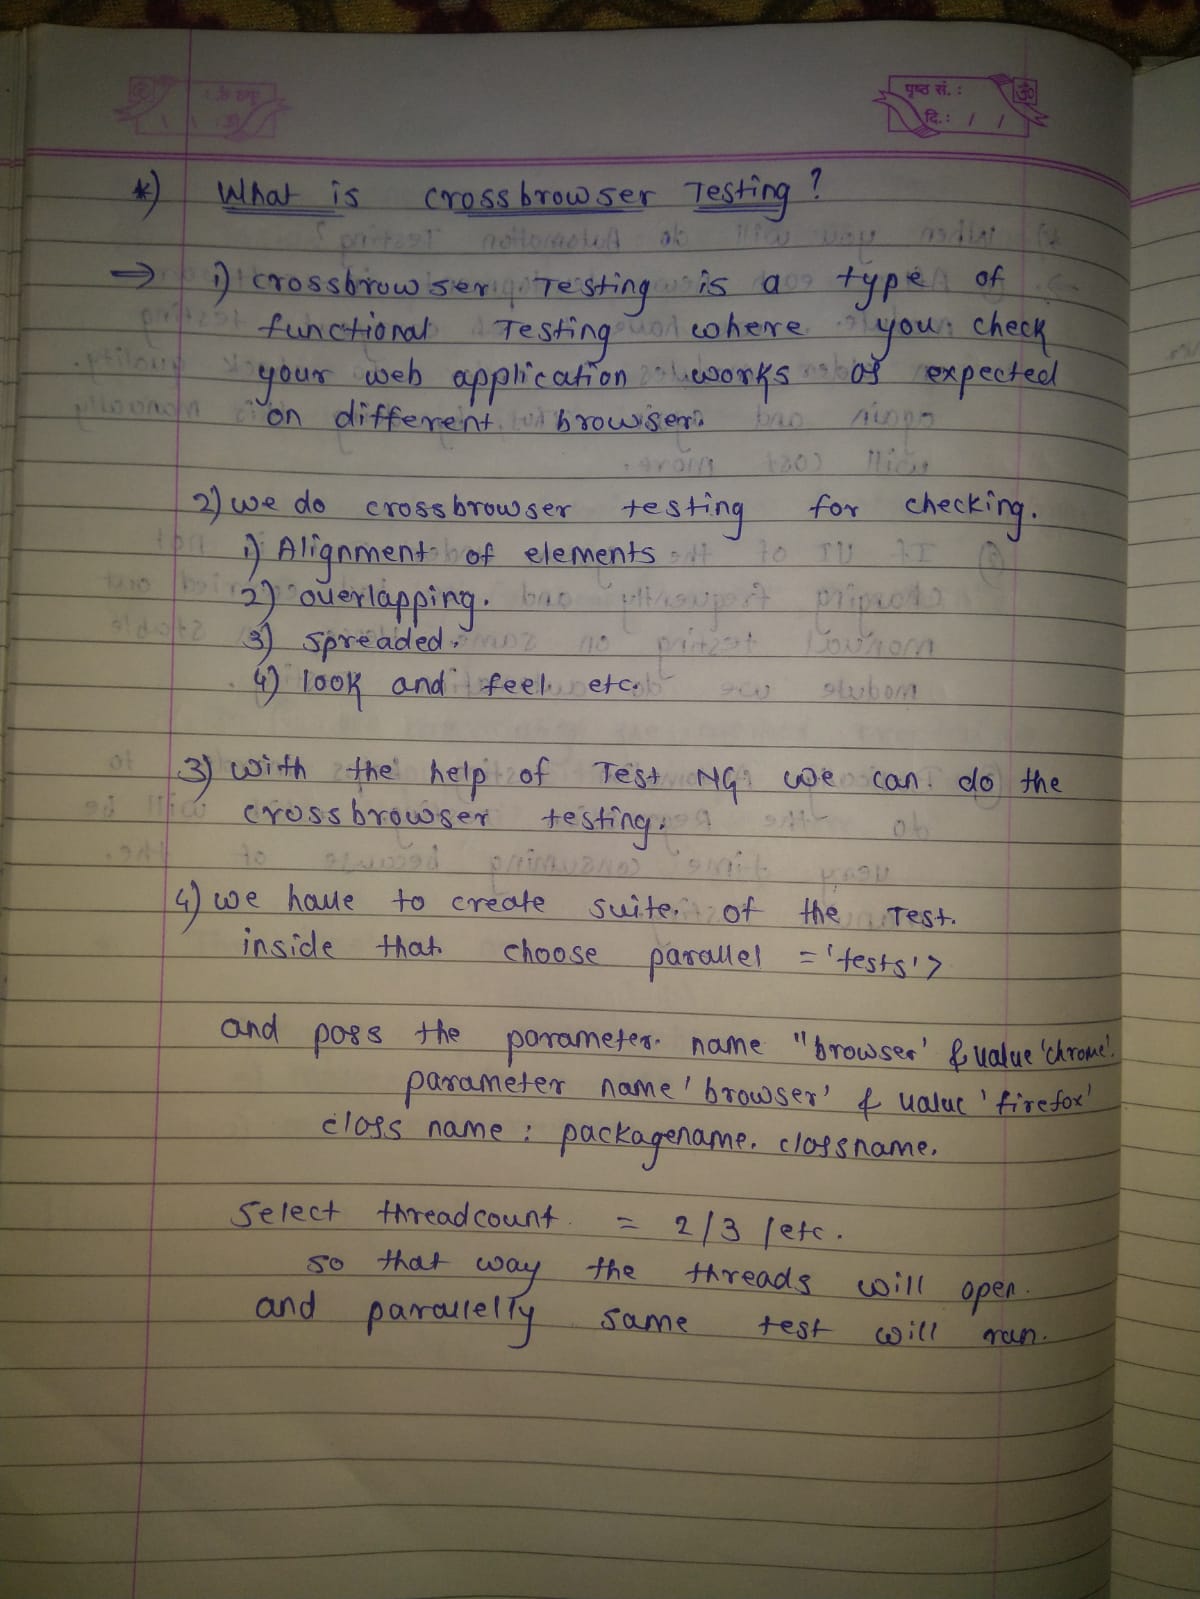 पृष्ठ सं. :
दि. : / /
*) What is crossbrowser Testing ?
⇒ 1) crossbrowser Testing is a type of
functional Testing where you check
your web application works as expected
on different browser.
2) we do crossbrowser testing for checking.
1) Alignment of elements
2) overlapping.
3) spreaded.
4) look and feel etc.
3) with the help of Test NG we can do the
crossbrowser testing.
4) we have to create suite of the Test.
inside that choose parallel = 'tests'>
and pass the parameter name "browser' & value 'chrome'.
parameter name 'browser' & value 'firefox'
class name : packagename. classname.
Select threadcount = 2/3 /etc.
so that way the threads will open.
and parallelly same test will run.